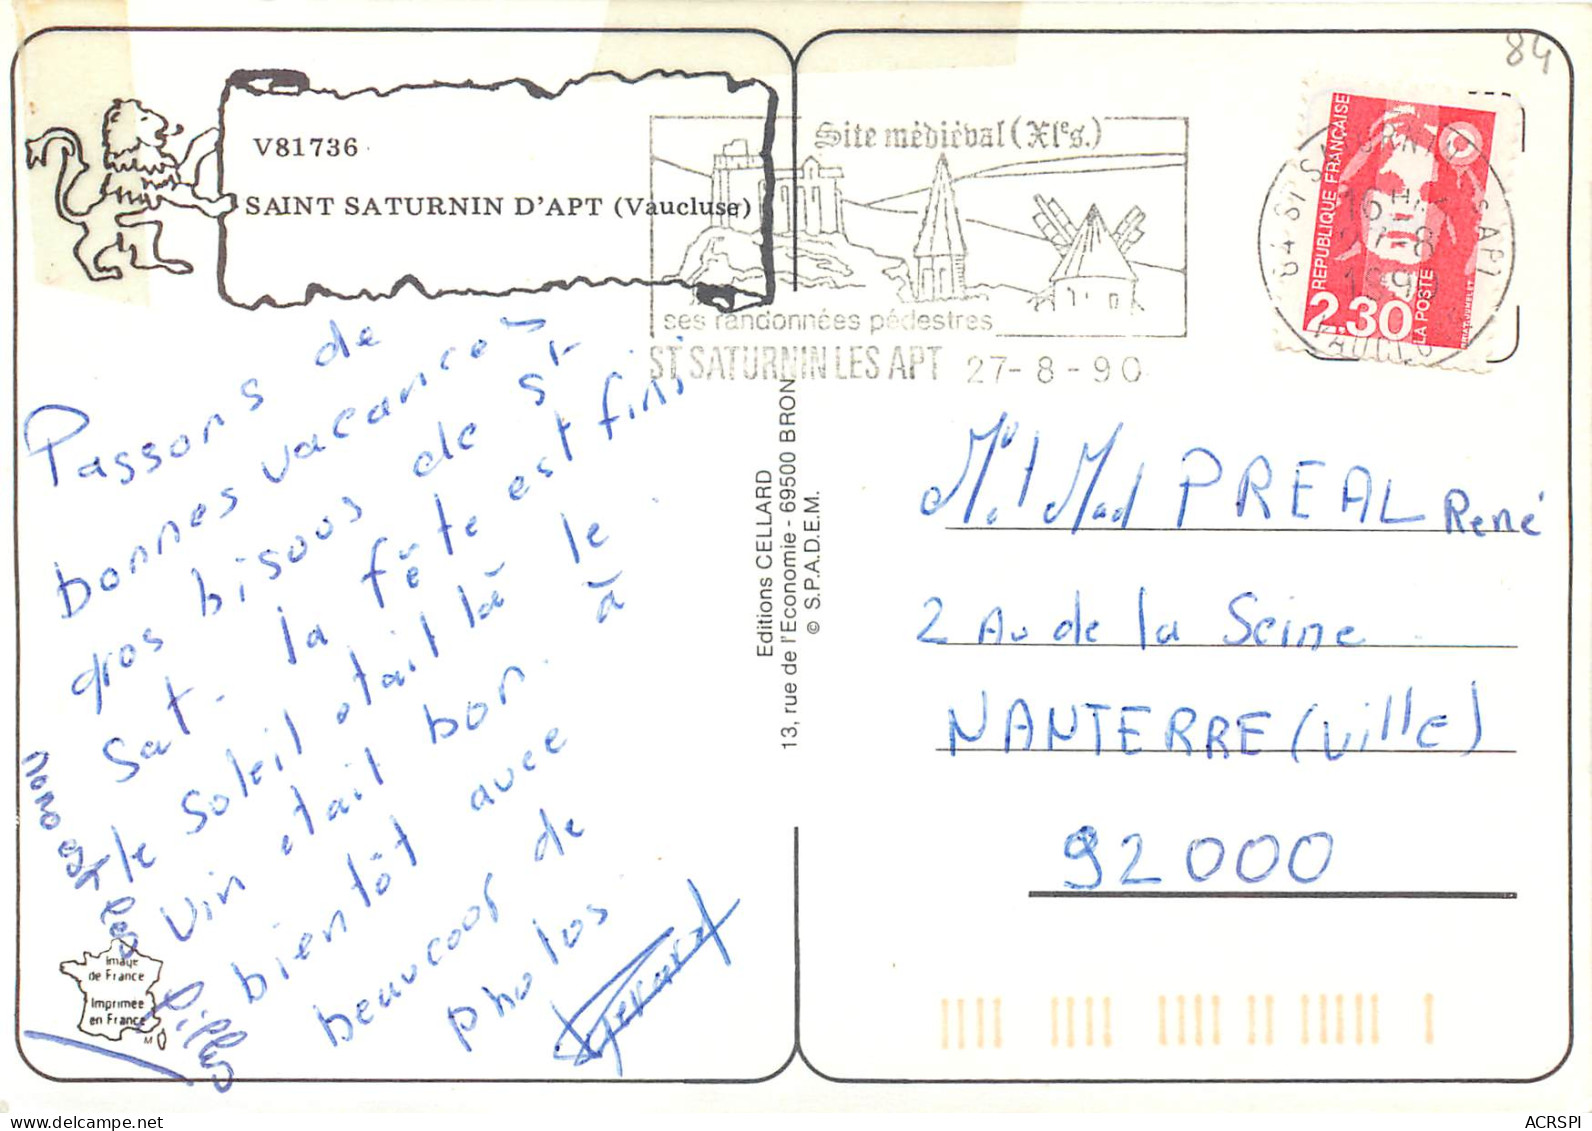 84
V81736
SAINT SATURNIN D'APT (Vaucluse)
Site médiéval (XIe s.)
ses randonnées pédestres
ST SATURNIN LES APT 27-8-90
84 ST SATURNIN LES APT
16 H
27-8
1990
VAUCLUSE
RÉPUBLIQUE FRANÇAISE
2,30
LA POSTE
Passons de
bonnes vacances
gros bisous de St
Sat. la fête est fini
le soleil etait là le
Vin etait bon. à
bientôt avec
beaucoup de
photos
Gerard
nono et les
filles
Image
de France
Imprimée
en France
M
Editions CELLARD
13, rue de l'Economie - 69500 BRON
© S.P.A.D.E.M.
Mr et Mad PREAL René
2 Au de la Seine
NANTERRE (Ville)
92000
ACRSPI